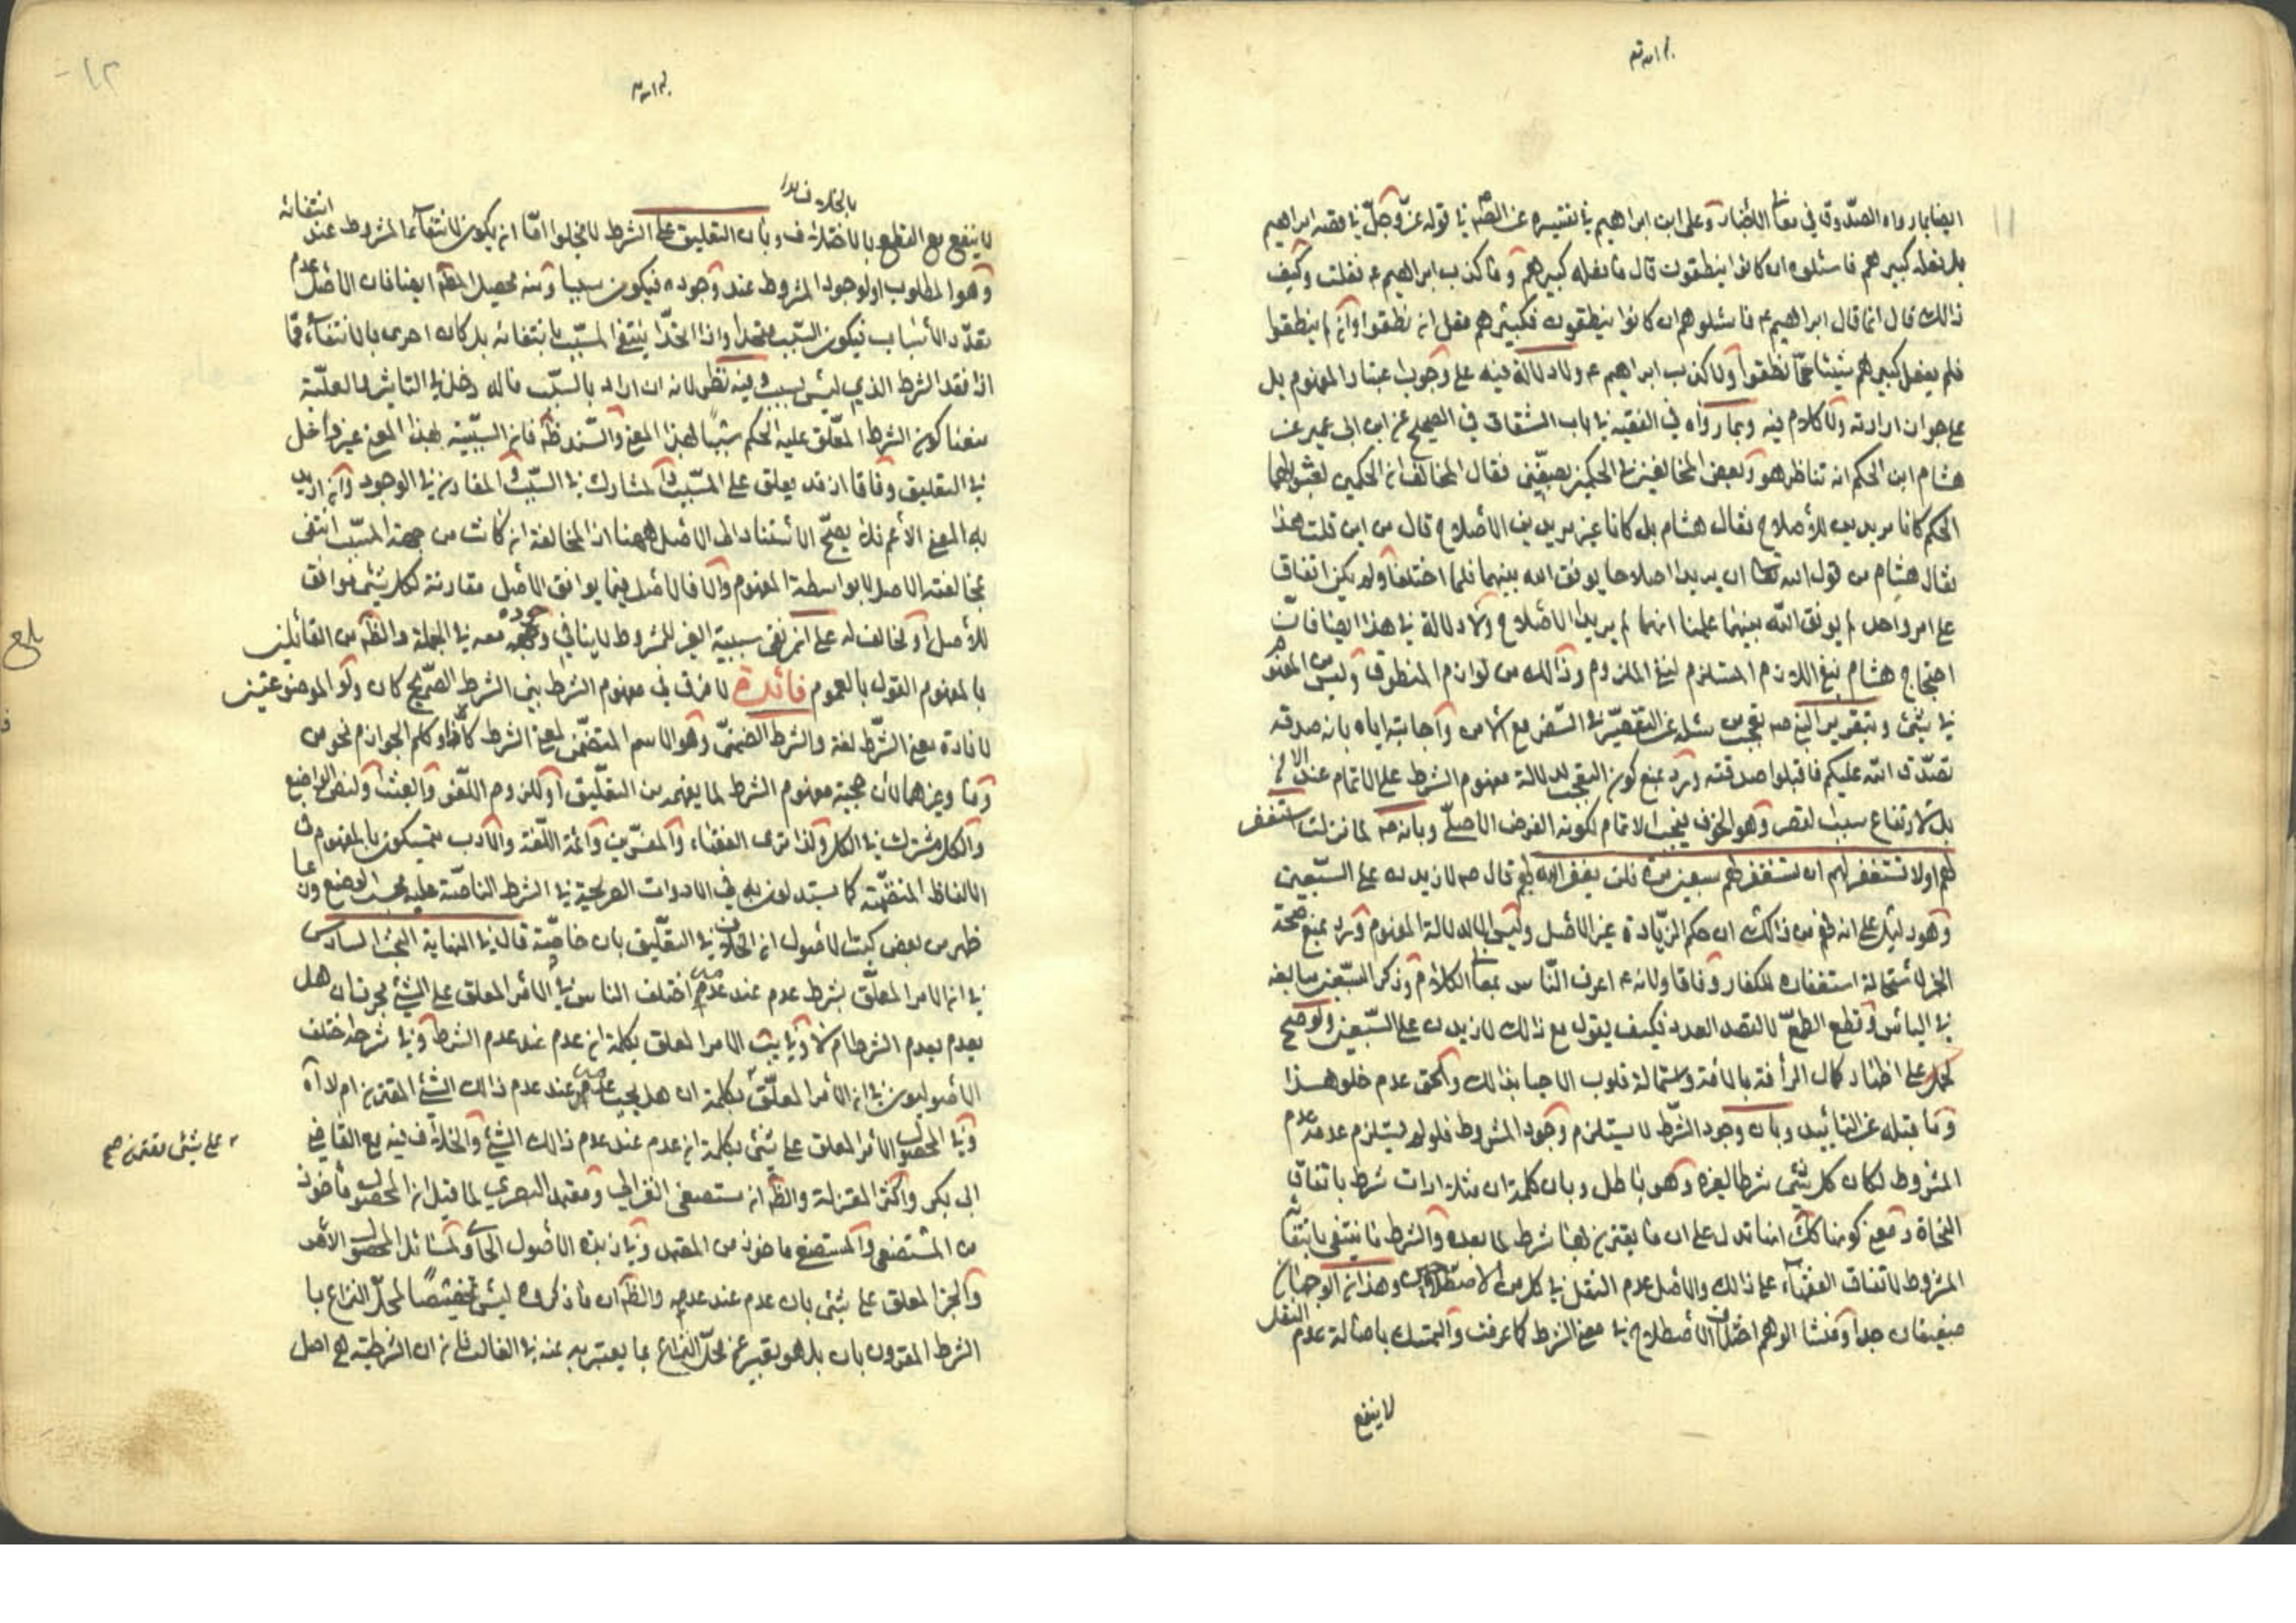 ايضا بما رواه الصدوق في معاني الأخبار وعلى ابن ابراهيم في تفسيره عن الصم في قوله عز وجل في قصه ابراهيم
بل فعله كبيرهم فاسئلوه ان كانوا ينطقون قال ما فعله كبيرهم وما كذب ابراهيم عم فقلت وكيف
ذالك قال انما قال ابراهيم عم فاسئلوهم ان كانوا ينطقون فكبيرهم فعل ان نطقوا وان لم ينطقوا
فلم يفعل كبيرهم شيئا فما نطقوا ولا كذب ابراهيم عم ولا دلالة فيه على وجوب اعتبار المفهوم بل
على جواز ارادته ولا كلام فيه وبما رواه في الفقيه في باب الشقاق في الصحيح عن ابن ابى عمير عن
هشام ابن الحكم انه تناظر هو وبعض المخالفين في الحكمين بصفين فقال المخالف ان الحكمين لقبولهما
الحكم كانا مريدين للأصلاح فقال هشام بل كانا غير مريدين الأصلاح قال من اين قلت هذا
فقال هشام من قول الله تعا ان يريدا اصلاحا يوفق الله بينهما فلما اختلفا ولم يكن اتفاق
على امر واحد لم يوفق الله بينهما علمنا انهما لم يريدا الأصلاح ولا دلالة في هذا ايضا فان
احتجاج هشام بنفي اللازم المستلزم لنفي الملزوم وذالك من لوازم المنطوق وليس من المفهوم
في شئ وبتقرير النبي صم تعجب من سئله عن التقصير في السفر مع الأمن واجابته اياه بانه صدقه
تصدق الله عليكم فاقبلوا صدقته ورد بمنع كون التعجب لدلالة مفهوم الشرط على الاتمام عند الامن
بل لارتفاع سبب القصر وهو الخوف فيجب الاتمام لكونه الفرض الأصلي وبانه صم لما نزلت استغفر
لهم اولا تستغفر لهم ان تستغفر لهم سبعين مرة فلن يغفر الله لهم قال صم لازيدن على السبعين
وهو دليل على انه فهم من ذالك ان حكم الزيادة غير الأصل وليس الا لدلالة المفهوم ورد بمنع صحة
الخبر لأستحالة استغفاره للكفار وفاقا ولانه عم اعرف الناس بمعاني الكلام وذكر السبعين مبالغه
في اليأس وقطع الطمع لا لقصد العدد فكيف يقول مع ذالك لازيدن على السبعين ولو صح
لحمل على اظهار كمال الرأفة بالأمة واستمالة قلوب الاحيا بذالك والحق عدم خلو هذا
وما قبله عن التأييد وبان وجود الشرط لا يستلزم وجود المشروط فلو لم يستلزم عدمه عدم
المشروط لكان كل شئ شرطا لغيره وهو باطل وبان كلمة ان مثلا ادات شرط باتفاق
النحاة ومعنى كونها كك انها تدل على ان ما يقترن بها شرط لما بعده والشرط ما ينتفي بانتفائه
المشروط لاتفاق الفقهاء على ذالك والأصل عدم النقل في كل من الأصطلاحين وهذان الوجهان
ضعيفان جدا ومنشا الوهم اختلاف الأصطلاح في معنى الشرط كما عرفت والتمسك باصالة عدم النقل
لا ينفع
لا ينفع مع القطع بالاختلاف وبان التعليق على الشرط لا يخلوا امّا ان يكون لانتفاء المشروط عند انتفائه
وهو المطلوب او لوجود المشروط عند وجوده فيكون سببا ومنه يحصل المظم ايضا فان الأصل عدم
تعدد الأسباب فيكون السبب متحدا واذا اتحد ينتفي المسبب بانتفائه بل كان احرى بالانتفاء مما
اذا فقد الشرط الذي ليس بسبب وفيه نظر لانه ان اراد بالسبب ما له دخل في التاثير والعلية
منعنا كون الشرط المعلق عليه الحكم سببا لهذا المعنى والسند ظم فان السببية بهذا المعنى غير داخل
في التعليق وفاقا اذ قد يعلق على المسبب والمشارك في السبب والمقارن في الوجود وان اريد
به المعنى الأعم فلا يصح الأستناد الى الأصل ههنا اذ المخالفة ان كانت من جهة المسبب انتفى
مخالفته الاصل لا بواسطة المفهوم والا فالأصل فيما يوافق الأصل مقارنة لكل شئ موافق
للأصل او مخالف له على ان نفي سببية الغير للمشروط لا ينافي وجوده معه في الجملة والظم من القائلين
بالمفهوم القول بالعموم فائدة لا فرق في مفهوم الشرط بين الشرط الصريح كان ولو الموضوعتين
لافادة معنى الشرط لغة والشرط الضمني وهو الاسم المتضمن لمعنى الشرط كاذا وكلم الجوازم نحو من
وما وغيرهما لأن حجية مفهوم الشرط لما يفهم من التعليق او للزوم اللغو والعبث او لنص الواضع
والكل مشترك في الكل ولذا ترى الفقهاء والمفسرين وائمة اللغة والأدب يتمسكون بالمفهوم في
الالفاظ المتضمنة كما يستدلون به في الادوات الصريحية في الشرط الناصة عليه بحسب الوضع وربما
ظهر من بعض كتب الأصول ان الخلاف في التعليق بان خاصة قال في النهاية البحث السادس
في ان الامر المعلق بشرط عدم عند عدمه اختلف الناس في الأمر المعلق على الشئ بحرف ان هل
يعدم بعدم الشرط ام لا وفي يب الامر المعلق بكلمة ان عدم عند عدم الشرط وفي شرحه اختلف
الأصوليون في ان الأمر المعلق بكلمة ان هل يجب عدمه عند عدم ذالك الشئ المقترن ام لا اه
وفي المحصول الأمر المعلق على شئ بكلمة ان عدم عند عدم ذالك الشئ والخلاف فيه مع القاضي
ابى بكر واكثر المعتزلة والظم ان مستصفى الغزالي ومعتمد البصري لما قيل ان المحصول ماخوذ
من المستصفى والمستصفى ماخوذ من المعتمد وفي زبدة الأصول الحاوي لمسائل المحصول الأمر
والخبر المعلق على شئ بان عدم عند عدمه والظم ان ما ذكروه ليس تخصيصا لمحل النزاع با
الشرط المقرون بان بل هو تعبير عن محل النزاع بما يعتبر به عنه في الغالب فان ان الشرطية هي اصل
على شئ مقترن صح
بلغ